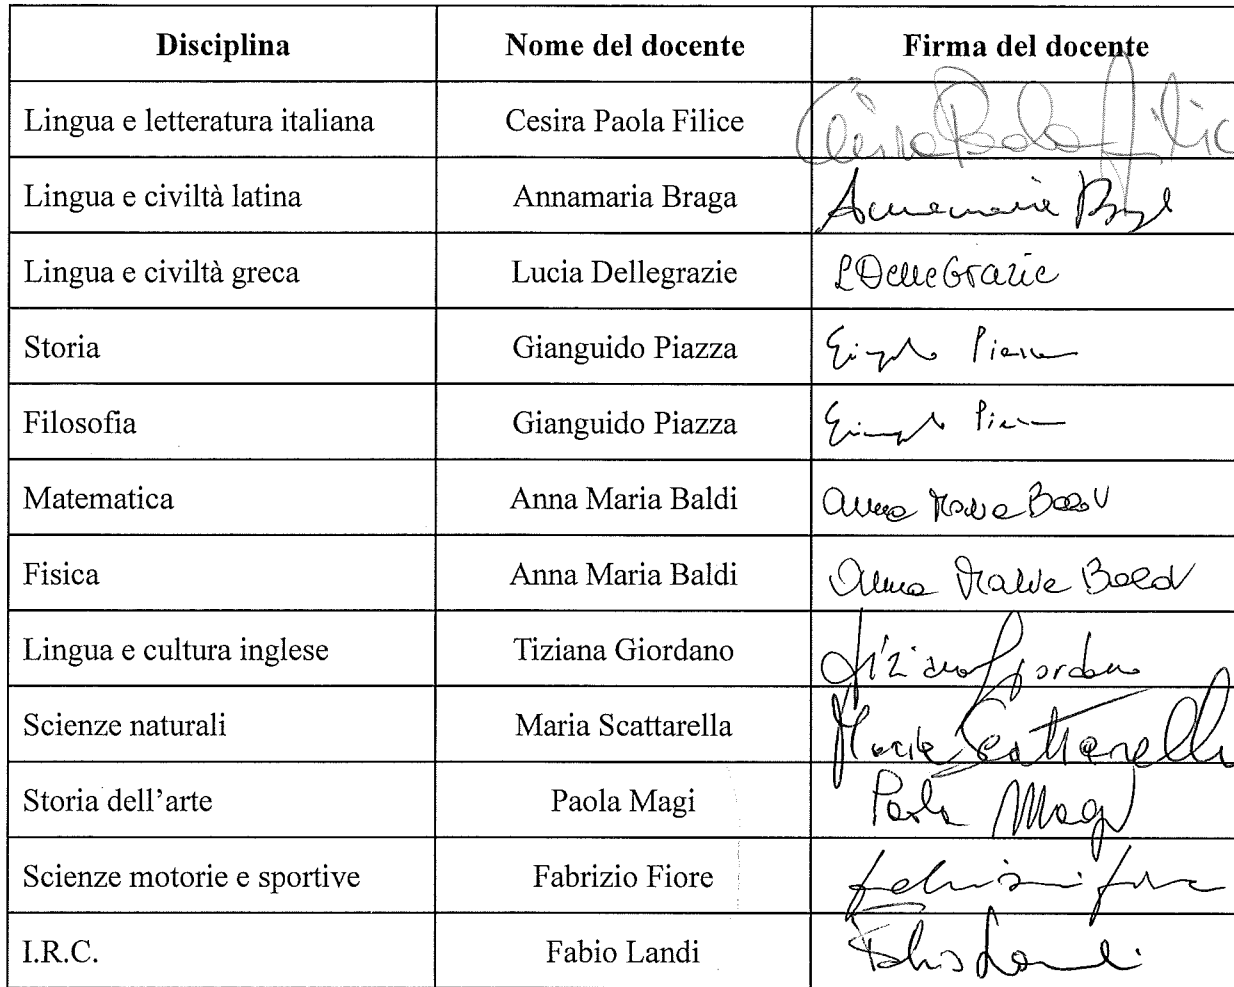 Disciplina Nome del docente Firma del docente
Lingua e letteratura italiana Cesira Paola Filice Cesira Paola Filice
Lingua e civiltà latina Annamaria Braga Annamaria
Lingua e civiltà greca Lucia Dellegrazie L Delle Grazie
Storia Gianguido Piazza
Filosofia Gianguido Piazza
Matematica Anna Maria Baldi Anna Maria Baldi
Fisica Anna Maria Baldi Anna Maria Baldi
Lingua e cultura inglese Tiziana Giordano Tiziana Giordano
Scienze naturali Maria Scattarella Maria Scattarella
Storia dell'arte Paola Magi Paola Magi
Scienze motorie e sportive Fabrizio Fiore
I.R.C. Fabio Landi Fabio Landi